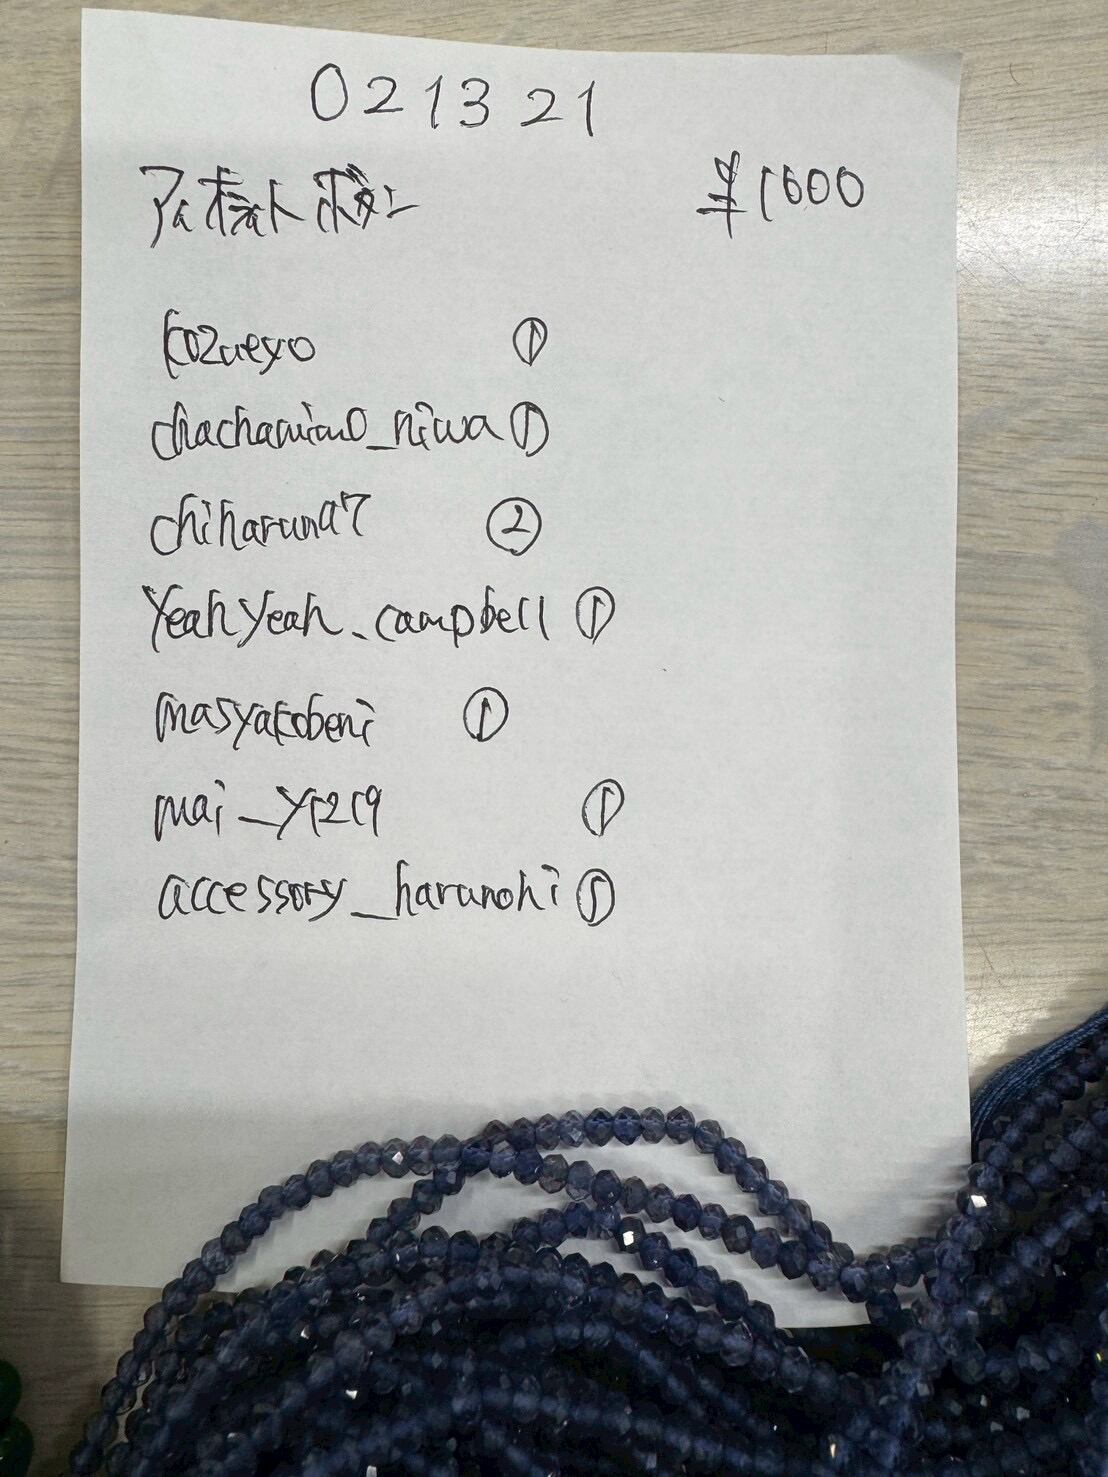 021321
アイオライト ボタン ¥1600
kozueyo ①
chachamimo_niwa ①
chiharuna7 ②
yeahyeah_campbell ①
masyakobeni ①
mai_y1219 ①
accessory_harunohi ①